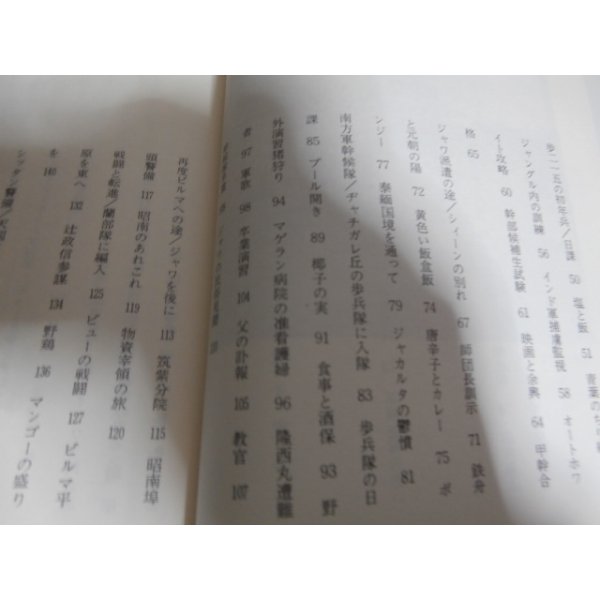 歩二一五の初年兵/日課 50 塩と飯 51 青葉の
ジャングル内の訓練 56 インド軍捕虜監視 58 オートホワ
イト攻略 60 幹部候補生試験 61 映画と余興 64 甲幹合
格 65
ジャワ派遣の途/シィーンの別れ 67 師団長訓示 71 鉄舟
と元朝の陽 72 黄色い飯盒飯 74 唐辛子とカレー 75 ボ
ンジー 77 泰緬国境を通って 79 ジャカルタの鬱憤 81
南方軍幹候隊/ヂャチガレ丘の歩兵隊に入隊 83 歩兵隊の日
課 85 プール開き 89 椰子の実 91 食事と酒保 93 野
外演習猪狩り 94 マゲラン病院の准看護婦 96 隆西丸遭難
者 97 軍歌 98 卒業演習 104 父の訃報 105 教官 107
再度ビルマへの途/ジャワを後に 113 筑紫分院 115 昭南埠
頭警備 117 昭南のあれこれ 119 物資宰領の旅 120
戦闘と転進/蘭部隊に編入 125 ピューの戦闘 127 ビルマ平
原を東へ 132 辻政信参謀 134 野鶏 136 マンゴーの盛り
を 140
シッタン警備/